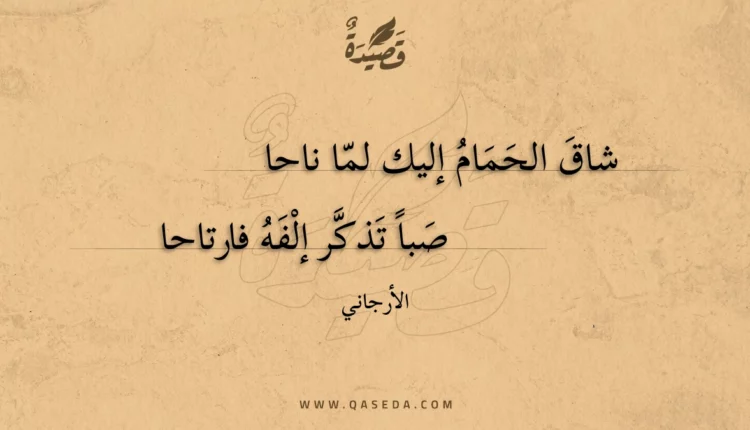 قَصِيْدَةٌ
شاقَ الحَمَامُ إليك لمّا ناحا
صَباً تَذكَّر إلْفَهُ فارتاحا
الأرجاني
WWW.QASEDA.COM